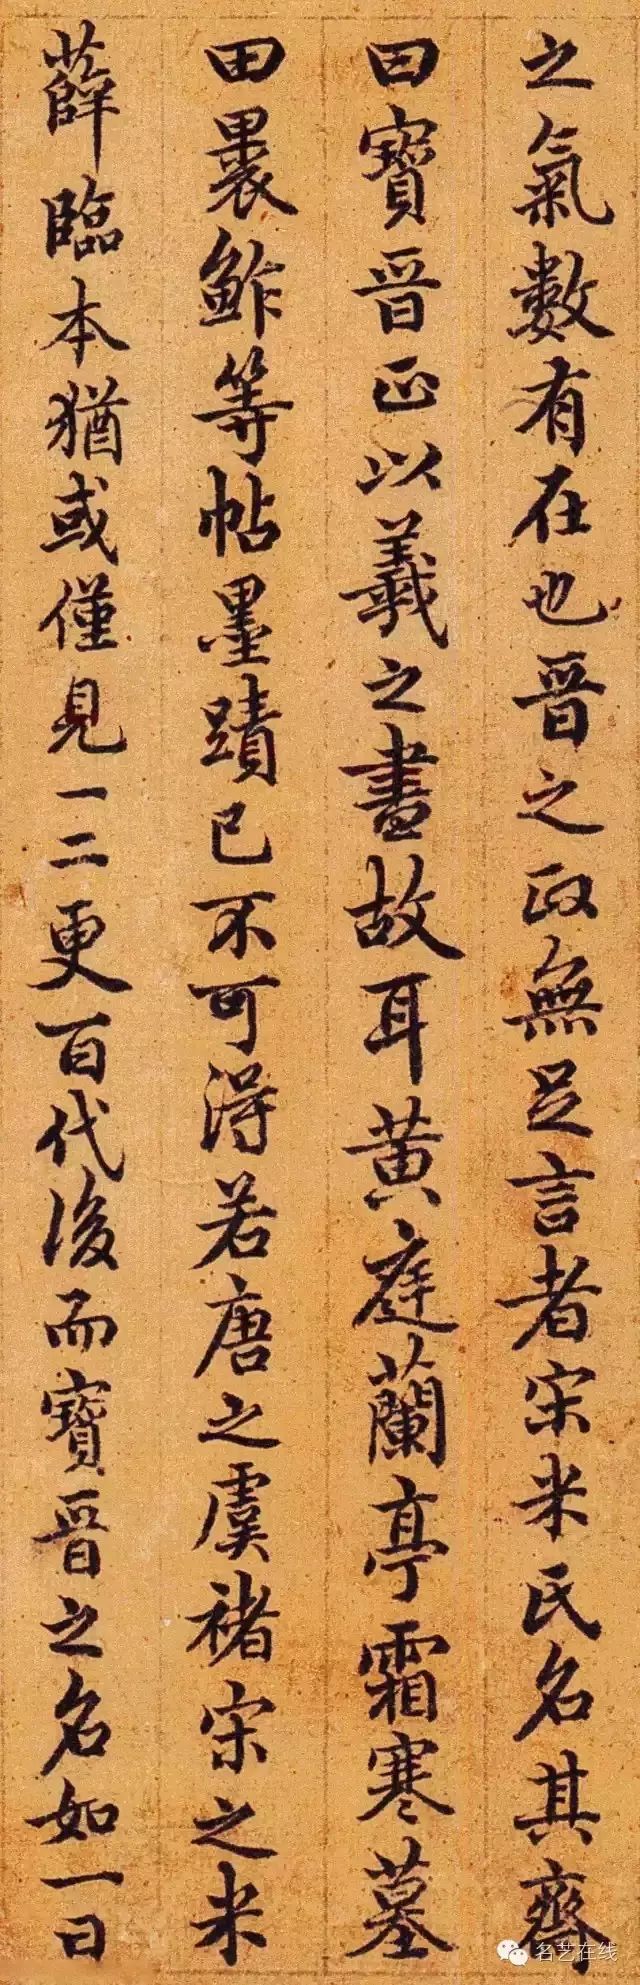 之氣數有在也晋之政無足言者宋米氏名其齋
曰寶晋正以羲之書故耳黄庭蘭亭霜寒墓
田裹鮓等帖墨蹟已不可得若唐之虞褚宋之米
薛臨本猶或僅見一二更百代後而寶晋之名如一日
名艺在线